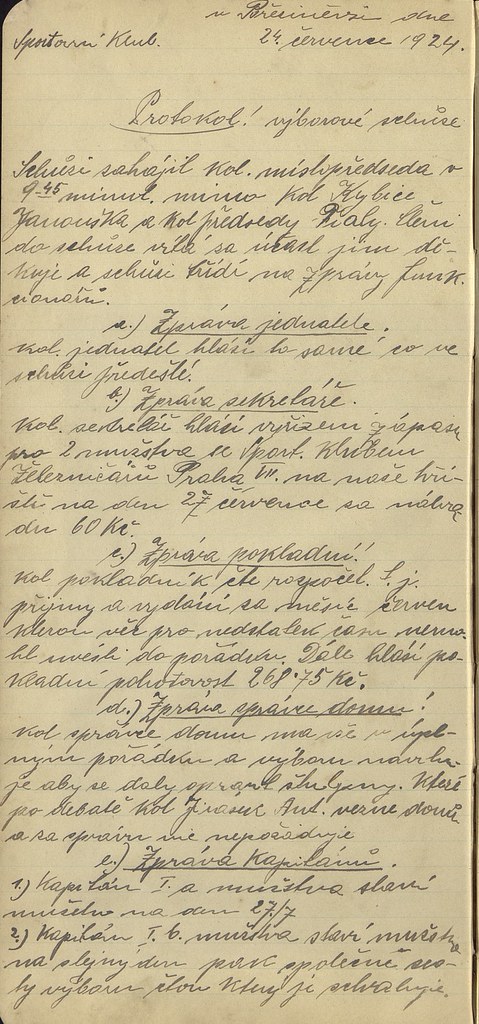 v Březiněvsi dne
Sportovní Klub. 24. července 1924.
Protokol! výborové schůze
Schůzi zahájil kol. místopředseda v
9 45 minut. mimo Kol Kybice
Janouška a kol předsedy Fialy. Členi
do schůze vítá za účast jim dě-
kuje a schůzi řídí na zprávy funk-
cionářů.
a.) Zpráva jednatele.
kol. jednatel hlásí to samé co ve
schůzi předešlé.
b.) Zpráva sekretáře.
kol. sekretář hlásí vyřízení zápasu
pro 2 mužstva se Sport. Klubem
Železničářů Praha VII. na naše hři-
ště na den 27 července za náhra-
du 60 Kč.
c.) Zpráva pokladní!
kol pokladník čte rozpočet. t. j.
příjmy a vydání za měsíc červen
kterou věc pro nedstatek času nemo-
hl uvésti do pořádku. Dále hlásí po-
kladní pohotovost 268.75 Kč.
d.) Zpráva správce domu!
kol správce domu má vše v úpl-
ným pořádku a výboru navrhu-
je aby se daly opravit štulpny. Které
po debatě kol Jirasek Ant. vezme domů
a za správu nic nepožáduje
e.) Zpráva Kapitánů.
1.) Kapitán I. a mužstva staví
mužstvo na den 27/7
2.) Kapitán I. b. mužstva staví mužstvo
na stejný den pak společně ses-
ty výboru čtou který je schvaluje.